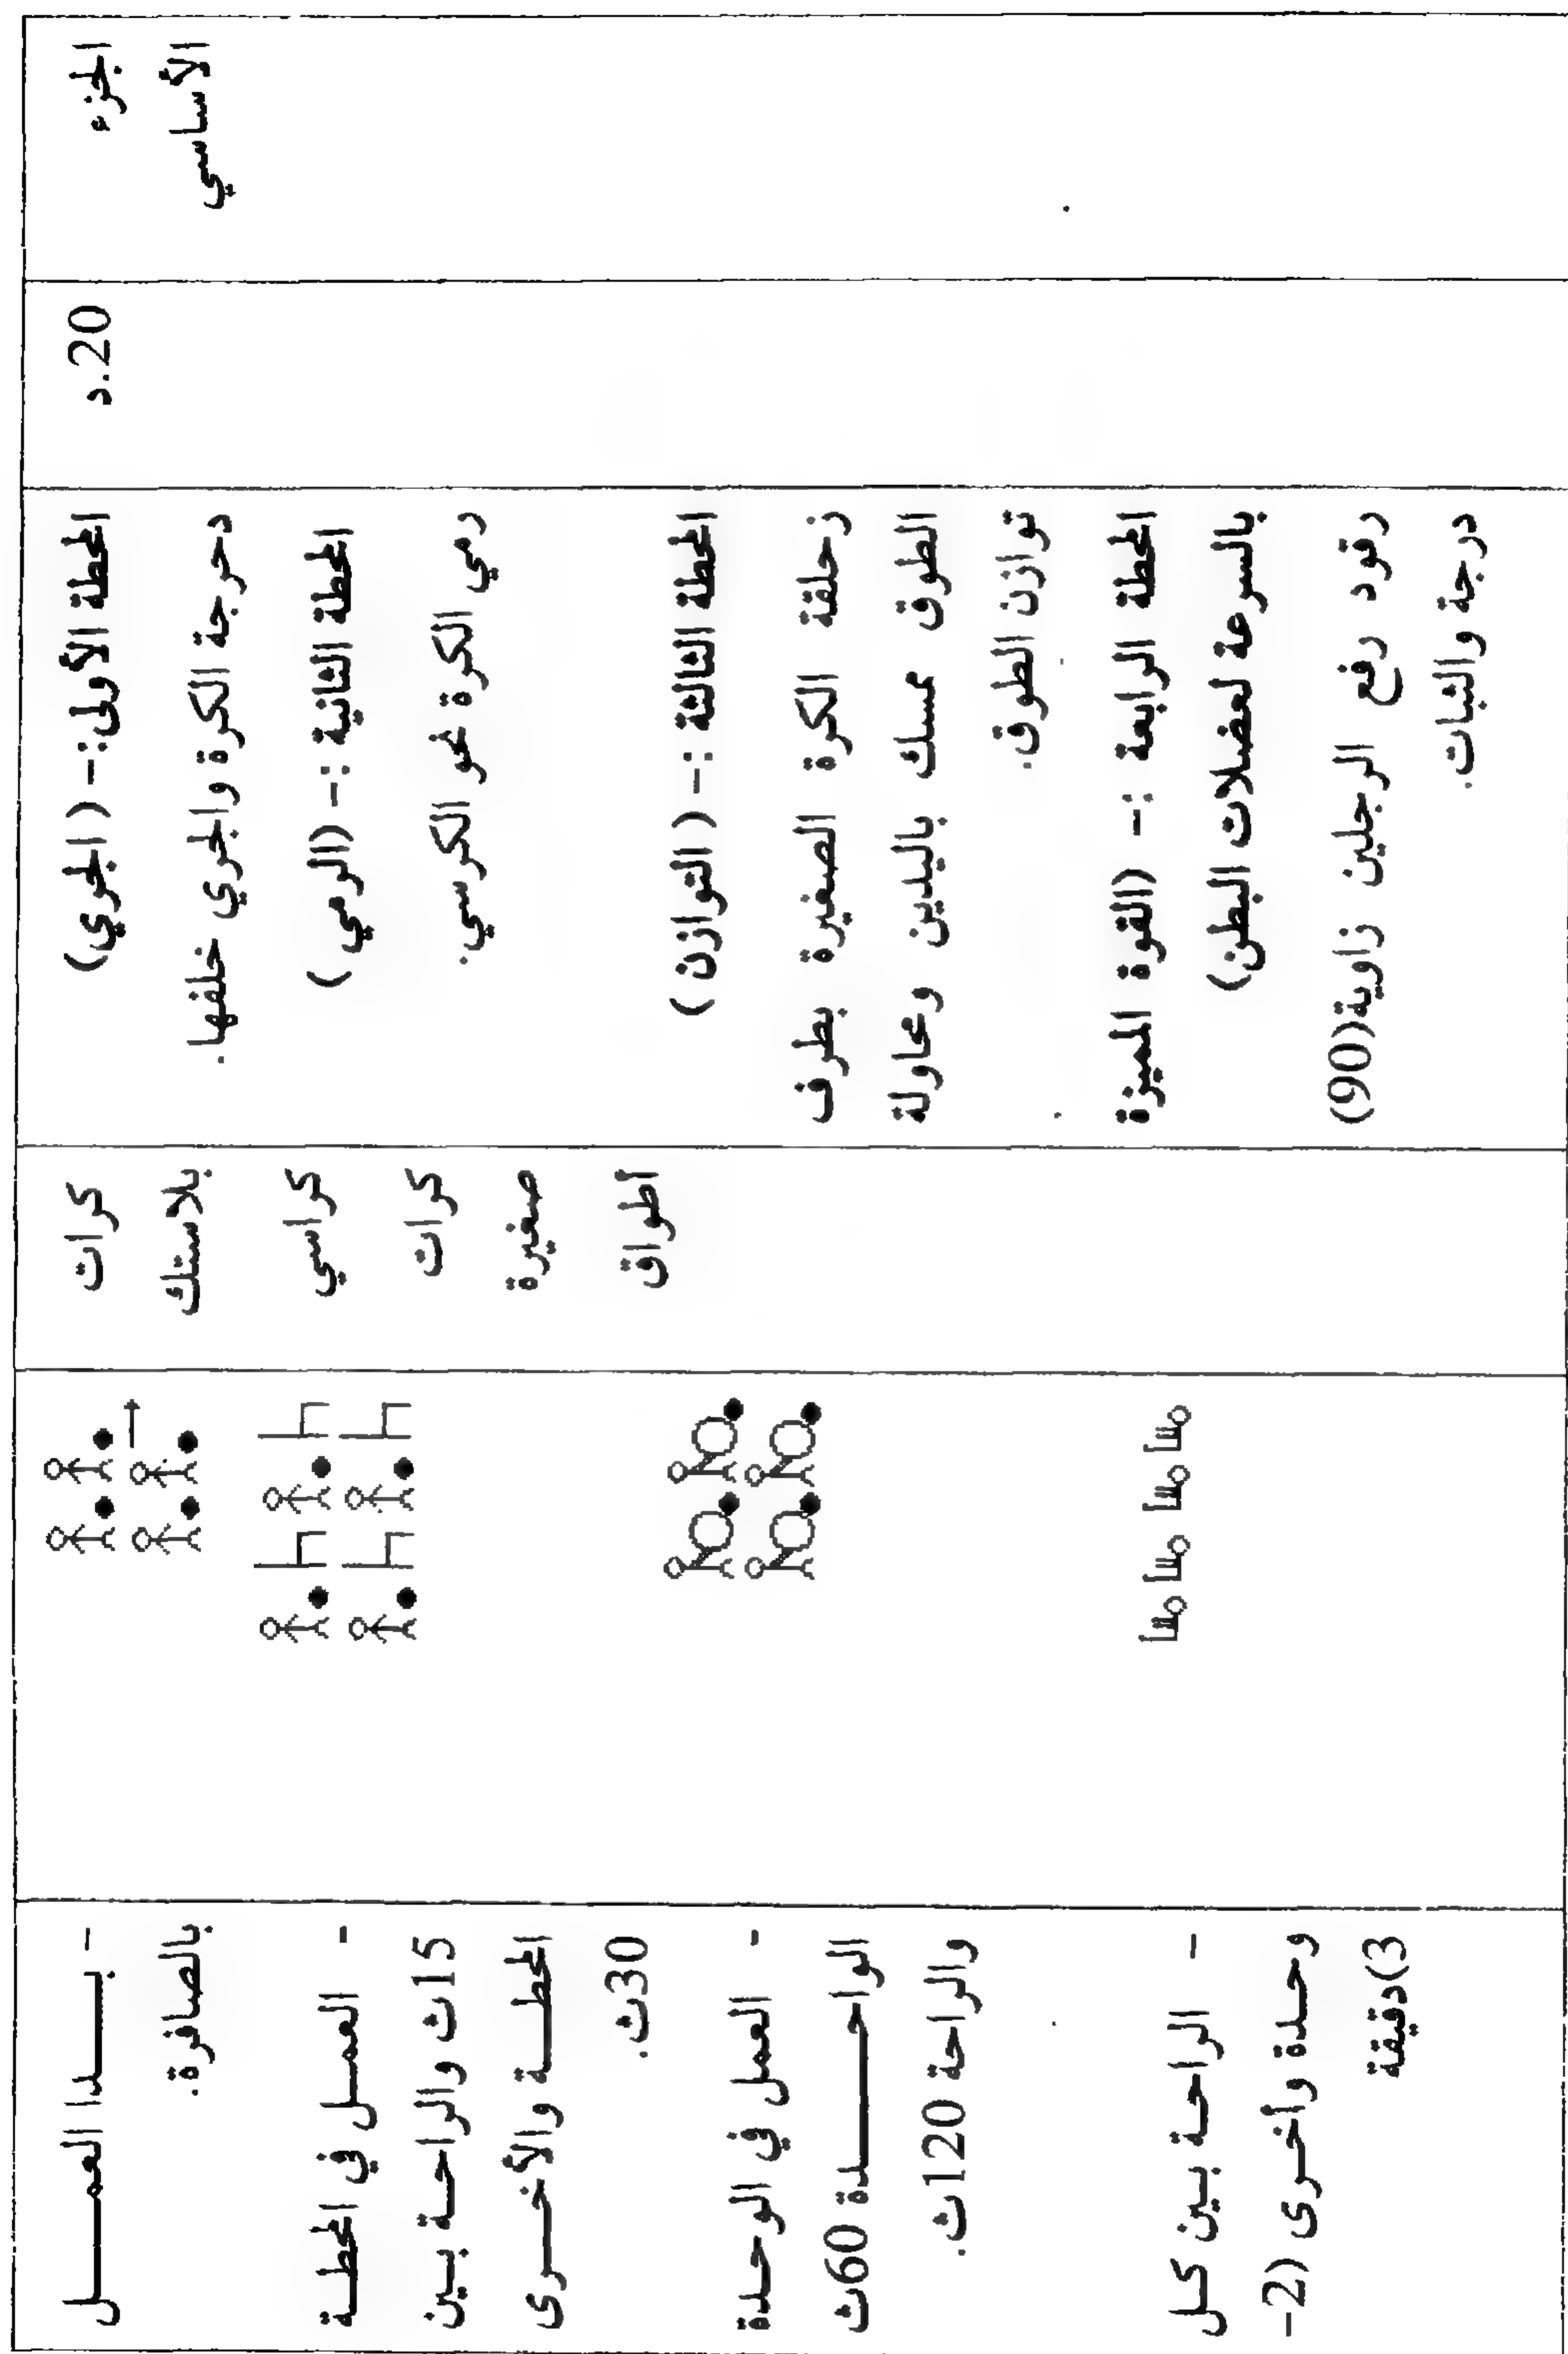 الجزء
الأساسي
20.د
المحطة الأولى:- ( الجري)
دحرجة الكرة والجري خلفها.
المحطة الثانية :- (الرمي )
رمي الكرة نحو الكرسي.
المحطة الثالثة :- ( التوازن )
زحلقة الكرة الصغيرة بطرف
الطوق ممسك باليدين ومحاولة
توازن الطوق.
المحطة الرابعة :- (القوة المميزة
بالسرعة لعضلات البطن)
رقود رفع الرجلين زاوية(90)
درجة والثبات.
كرات
بلاستك
كراسي
كرات
صغيرة
أطواق
- بـــدا العمـــل
بالصافرة.
- العمـل في المحطـة
15ث والراحـة بـين
المحطـــة والأخـــرى
30ث.
- العمل في الوحدة
الواحـــــدة 60ث
والراحة 120ث.
- الراحـة بـين كـل
وحـدة وأخـرى (2-
3)دقيقة